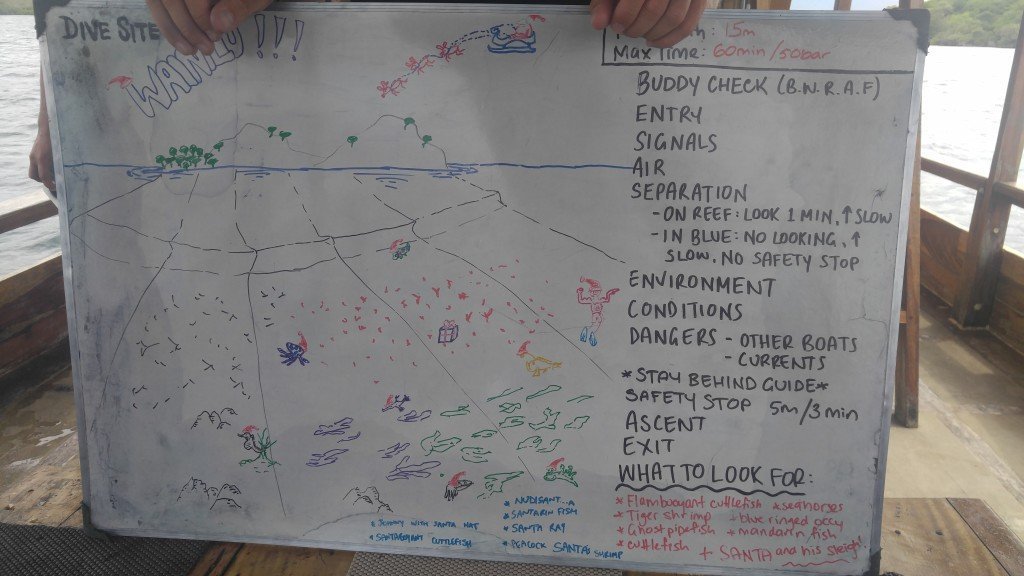 DIVE SITE
WAINILU!!!
: 15m
Max Time: 60min/50bar
BUDDY CHECK (B.W.R.A.F)
ENTRY
SIGNALS
AIR
SEPARATION
- ON REEF: LOOK 1 MIN, ↑ SLOW
- IN BLUE: NO LOOKING, ↑
SLOW, NO SAFETY STOP
ENVIRONMENT
CONDITIONS
DANGERS - OTHER BOATS
- CURRENTS
*STAY BEHIND GUIDE*
SAFETY STOP 5m/3min
ASCENT
EXIT
WHAT TO LOOK FOR:
*Flamboyant cuttlefish *seahorses
*Tiger shrimp +blue ringed occy
*Ghost pipefish *mandarin fish
*cuttlefish + SANTA and his sleigh!
* JOHNNY WITH SANTA HAT
* SANTABOYANT CUTTLEFISH
* NUDISANT..A
* SANTARIN FISH
* SANTA RAY
* PEACOCK SANTA SHRIMP